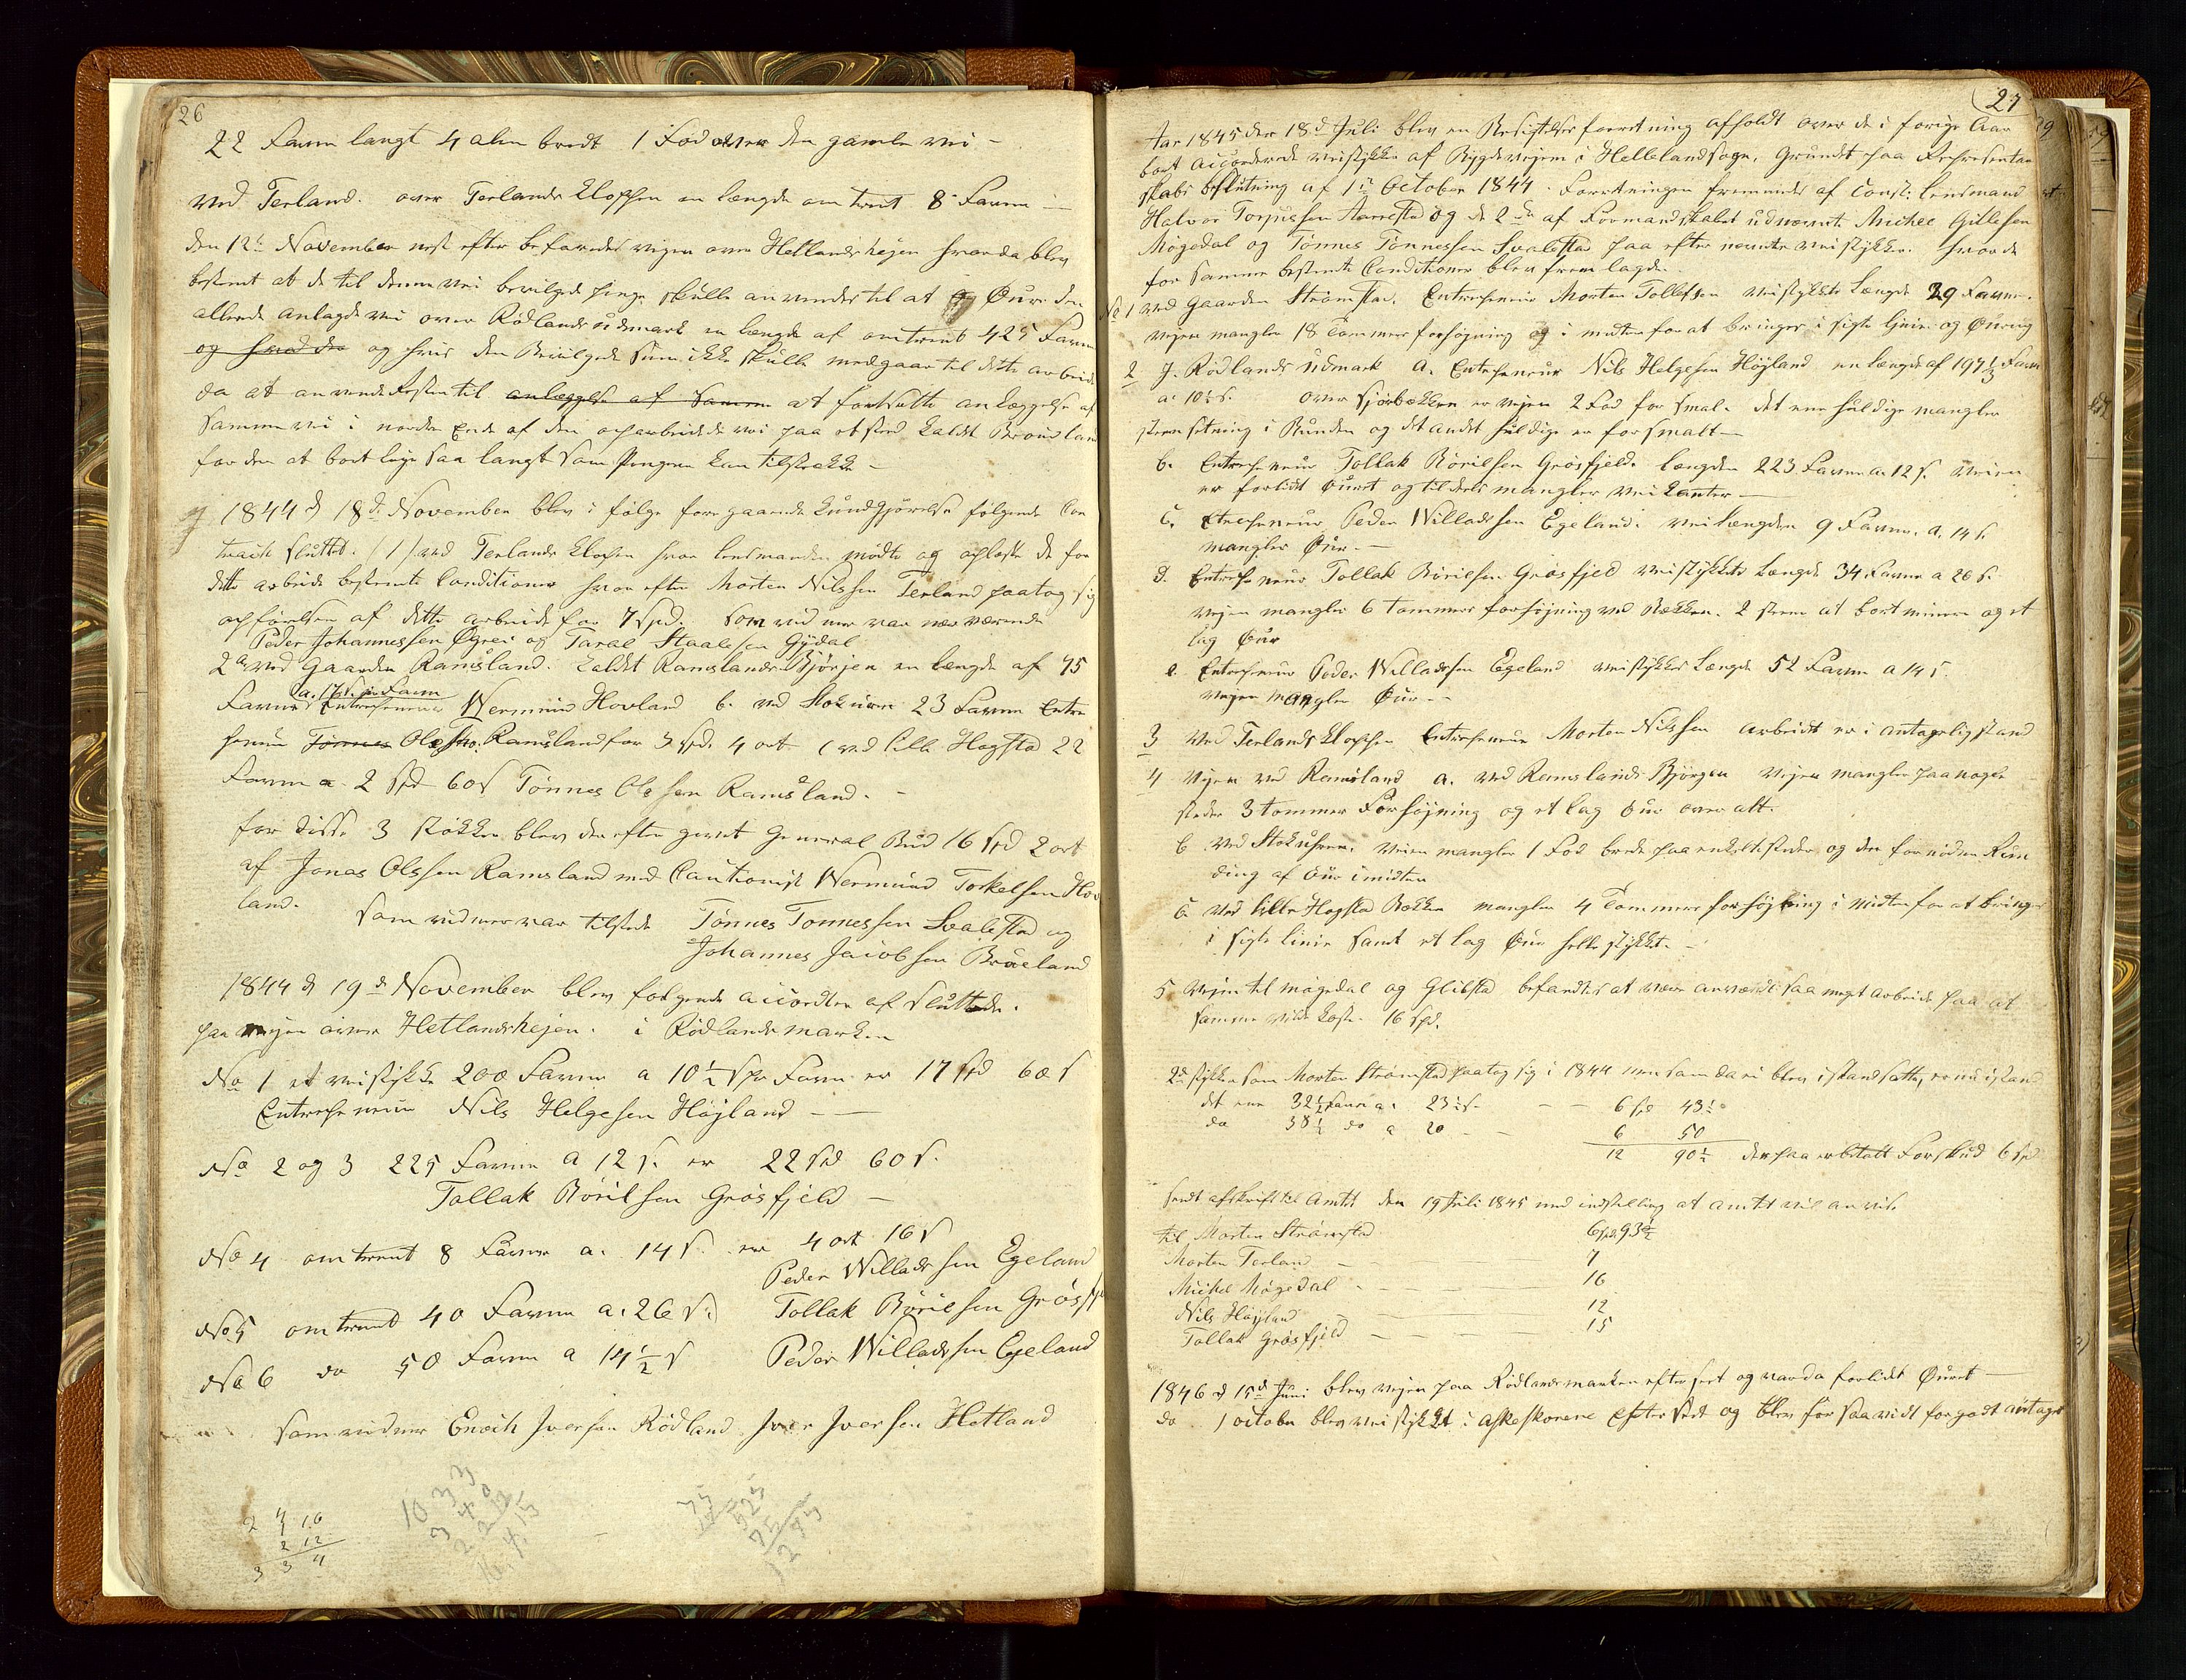 26
22 Favne langt 4 alen bredt 1 Fod over den gamle vei –
ved Terland. over Terlands Kloppen en længde omtrent 8 Favne –
den 12te November nest efter befaredes vejen over Hetlandshejen hvor da blev
bestemt at de til denne vei bevilgede penge skulle anvendes til at Øure den
allerede anlagde vei over Rødlands udmark en længde af omtrent 425 Favne
og hvis den Bevilgede sum ikke skulle medgaae til dette arbeide
da at anvende Resten til anlæggelse af Samme at fortsætte anlæggelse af
Samme vei i nordre Ende af den oparbeidede vei paa et sted kaldt
for den at bortleje saa langt som Pengene kan tilstrække –
1844 d 18de November blev i følge foregaaende Kundgjørelse følgende Con
tract sluttet. (1) ved Terlands Klopen hvor lensmanden mødte og oplæste de for
dette arbeide bestemte Conditioner hvorefter Morten Nilssen Terland paatog sig
opførelsen af dette arbeide for 7 Spd. Som vidner var nærværende
Peder Johannessen Øgrei og Taral Staalesen Gydal
2 a, ved Gaarden Ramsland. kaldet Ramslands Bjørjen en længde af 75
Favne a. 17 s. pr Favn Entrepreneur Wermund Hovland b. ved Stokuren 23 Favne Entre
preneur Tønnes Ole Ramsland for 3 spd. 4 ort c ved lille Hogstad 22
Favne a 2 Spd 60 s Tønnes Olssen Ramsland. –
for disse 3 støkker blev derefter gjort General Bud 16 Spd 2 ort
af Jonas Olssen Ramsland med Cautionist Wermund Torkelsen Hov
land. Som vidner var tilstede Tønnes Tønnessen Svalestad og
Johannes Jacobsen Brueland
1844 d 19de November blev følgende accorder afsluttede.
paa vejen over Hetlandshejen. i Rødlandsmarken
No 1 et veistykke 200 Favne a 10½ s pr Favn er 17 Spd 60 s
Entrepreneur Nils Helgesen Højland – –
No 2 og 3 225 Favne a 12 s. er 22 Spd 60 s.
Tollak Børilsen Grøsfjeld –
No 4 omtrent 8 Favne a. 14 s. er 4 ort 16 s
Peder Willadssen Egeland
No 5 omtrent 40 Favne a. 26 s. Tollak Børilsen Grøsfj
No 6 do 50 Favne a 14½ s Peder Willadssen Egeland
som vidner Enoch Iversen Rødland Iver Iversen Hetland
2 4 16
2 12
3 3 4
27
Aar 1845 den 18de Juli blev en Besigtelsesforretning afholdt over de i forige Aar
bort accorderede veistykker af Bygdevejene i Hellelandsogn, Grundet paa Representan
skabs beslutning af 1te October 1844. Forretningen fremmedes af const: lensmand
Halvor Torjussen Aarrestad og de 2de af Formandskabet udnevnte Michel Gillesen
Møgedal og Tønnes Tønnessen Svalestad paa efter nevnte veistykker. hvor de
for samme bestemte Conditioner blev fremlagde.
No 1 ved Gaarden Strømstad. Entrepreneur Morten Tollefsen veistykkets Længde 29 Favne.
vejen mangler 18 Tommer forhøjning i midten for at bringes i sigte linie og Øuring
2 I. Rødlands udmark a. Entrepreneur Nils Helgesen Højland en længde af 197⅓ Favn
a. 10½ s. over Sjørbækken er vejen 2 Fod for smal. det ene huldige mangler
steensetning i Bunden og det andet huldige er for smalt –
b. Entrepreneur Tollak Børilsen Grøsfjeld. længden 223 Favne a. 12 s. veien
er forlidt Øuret og tildels mangler veikanter –
c. Entrepreneur Peder Willadssen Egeland. veilængden 9 Favne. a. 14 s.
mangler Øur. –
d. Entrepreneur Tollak Børilsen Grøsfjeld veistykkets længde 34 Favne a 26 s.
vejen mangler 6 tommers forhøjning ved Bækken. 2 steene at bortminere og et
lag Øur
e. Entrepreneur Peder Willadssen Egeland veistykkets længde 52 Favne a 14 s.
vejen mangler Øur. –
3 ved Terlands Kloppen Entrepreneur Morten Nilssen arbeidet er i antagelig stand
4 Vejen ved Ramsland a. ved Ramslands Bjørgen vejen mangler paa nogle
steder 3 tommer Forhøjning og et lag Øur over alt.
b ved Stokuren, veien mangler 1 Fod brede paa enkelte steder og den fornødne Run
ding af Øur i midten
c. ved lille Hogstad Bækken mangler 4 Tommers forhøjning i midten for at bringes
i sigte linie samt et lag Øur hele stykket. –
5 Vejen til møgedal og Glibstad befandtes at være anvendt saa meget arbeide paa at
samme vilde koste. 16 spd.
2de stykker som Morten Strømstad paatog sig i 1844 men som da ei blev istandsatte, er nu istand
det ene 32½ Favn a. 23½ s. – – 6 spd 43½
do 38½ do a 20 – – 6 50
12 90½ derpaa erholdt Forskud 6 spd
sendt afskrift til Amtet den 19 Juli 1845 med indstilling at amtet vil anvise
til Morten Strømstad 6 spd 93½
Morten Terland – – 7
Michel Møgedal – – 16
Nils Højland – – 12
Tollak Grøsfjeld – – 15
1846 d 15de Juni blev vejen paa Rødlandsmarken efterseet og var da forlidt Øuret –
do 1 october blev veistykket i askeskorene efterseet og blev for saavidt for godt antaget